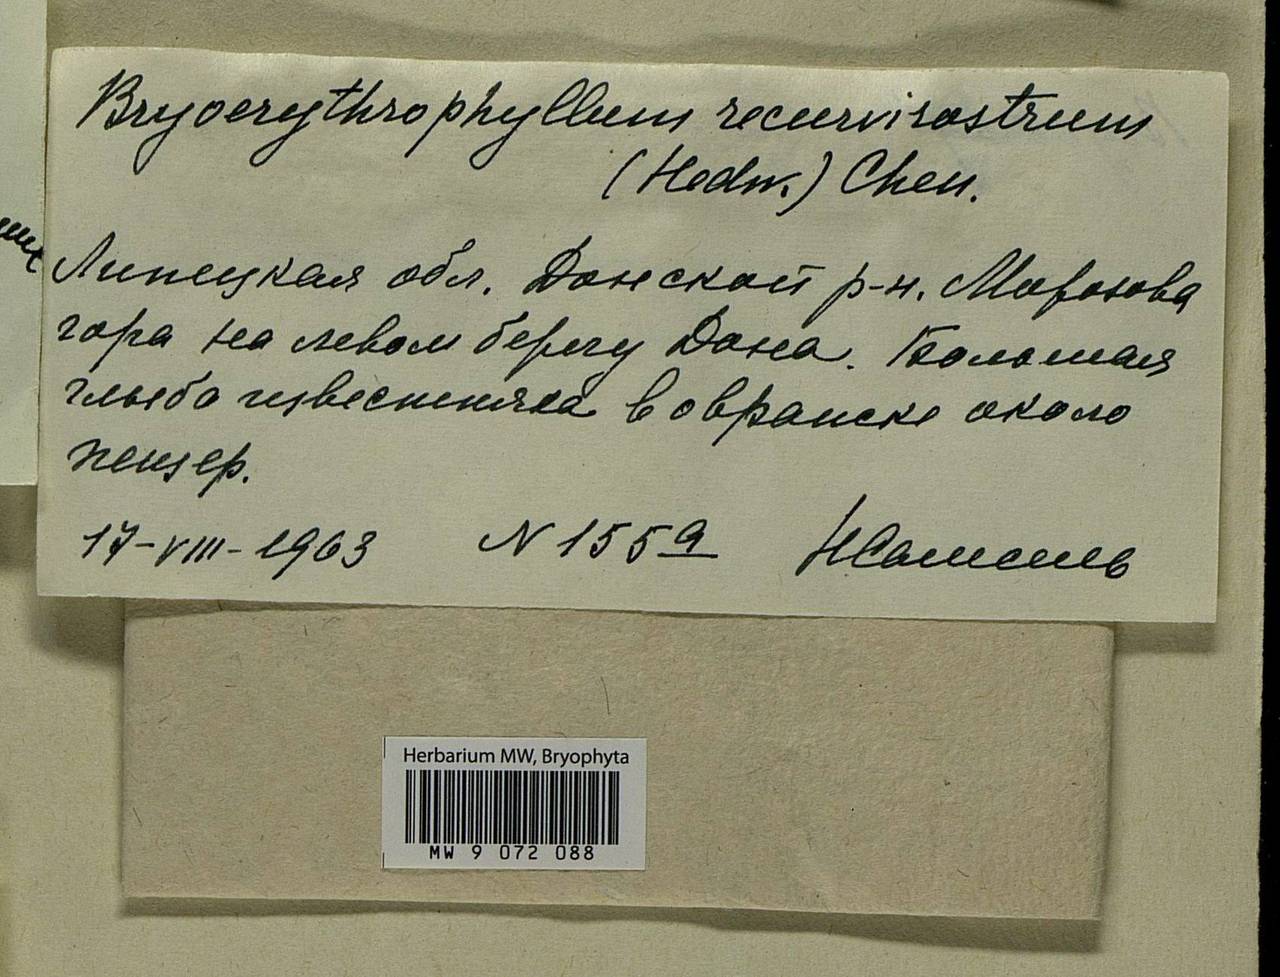 Bryoerythrophyllum recurvirostrum
(Hedw.) Chen.
Липецкая обл. Донской р-н. Морозова
гора на левом берегу Дона. Большая
глыба известняка в овражке около
пещер.
17-VIII-1963 N 155а
Herbarium MW, Bryophyta
MW 9 072 088